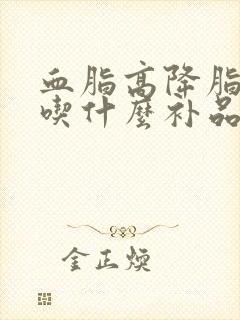 血脂高降脂
喫什麼补品
金正焕